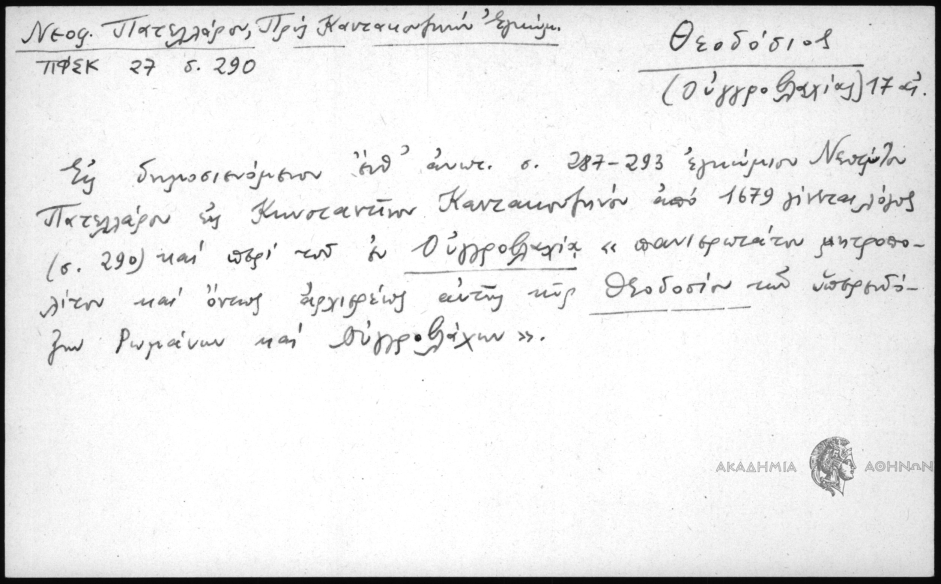 Νεοφ. Πατελλάρου, Πρὸς Καντακουζηνὸν ἐγκώμ.
ΠΦΣΚ 27 σ. 290
Θεοδόσιος
(Οὐγγροβλαχίας) 17 αἰ.
Εἰς δημοσιευόμενον ἐνθ' ἀνωτ. σ. 287-293 ἐγκώμιον Νεοφύτου
Πατελλάρου εἰς Κωνσταντῖνον Καντακουζηνόν ἀπό 1679 γίνεται λόγος
(σ. 290) καὶ περὶ τοῦ ἐν Οὐγγροβλαχίᾳ « πανιερωτάτου μητροπο-
λίτου καὶ ὄντως ἀρχιερέως αὐτῆς κὺρ Θεοδοσίου τῶν ὑπερενδό-
ξων Ρωμάνων καὶ Οὐγγροβλάχων ».
ΑΚΑΔΗΜΙΑ ΑΘΗΝΩΝ